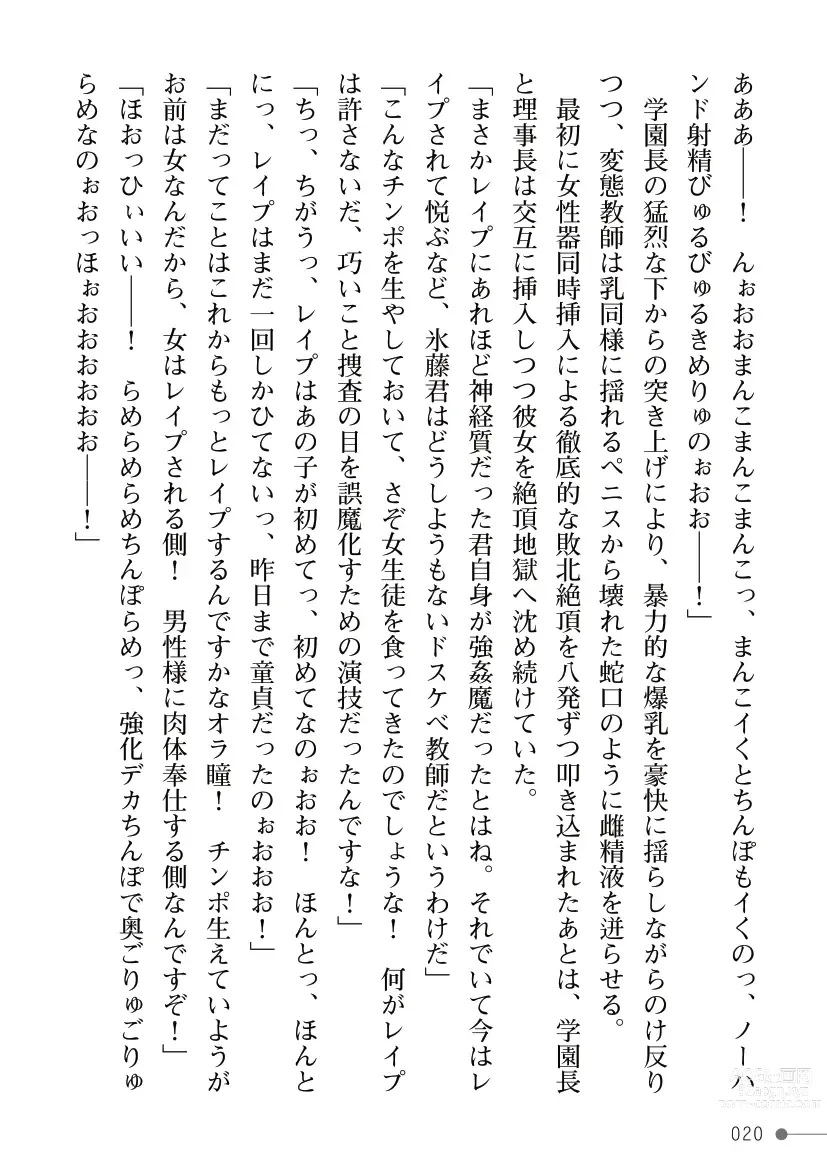 あああ――！　んぉおおまんこまんこまんこっ、まんこイくとちんぽもイくのっ、ノーハ
ンド射精びゅるびゅるきめりゅのぉおお――！」
　学園長の猛烈な下からの突き上げにより、暴力的な爆乳を豪快に揺らしながらのけ反り
つつ、変態教師は乳同様に揺れるペニスから壊れた蛇口のように雌精液を迸らせる。
　最初に女性器同時挿入による徹底的な敗北絶頂を八発ずつ叩き込まれたあとは、学園長
と理事長は交互に挿入しつつ彼女を絶頂地獄へ沈め続けていた。
「まさかレイプにあれほど神経質だった君自身が強姦魔だったとはね。それでいて今はレ
イプされて悦ぶなど、氷藤君はどうしようもないドスケベ教師だというわけだ」
「こんなチンポを生やしておいて、さぞ女生徒を食ってきたのでしょうな！　何がレイプ
は許さないだ、巧いこと捜査の目を誤魔化すための演技だったんですな！」
「ちっ、ちがうっ、レイプはあの子が初めてっ、初めてなのぉおお！　ほんとっ、ほんと
にっ、レイプはまだ一回しかひてないっ、昨日まで童貞だったのぉおおお！」
「まだってことはこれからもっとレイプするんですかなオラ瞳！　チンポ生えていようが
お前は女なんだから、女はレイプされる側！　男性様に肉体奉仕する側なんですぞ！」
「ほおっひぃいい――！　らめらめらめちんぽらめっ、強化デカちんぽで奥ごりゅごりゅ
らめなのぉおっほぉおおおおおお――！」
020